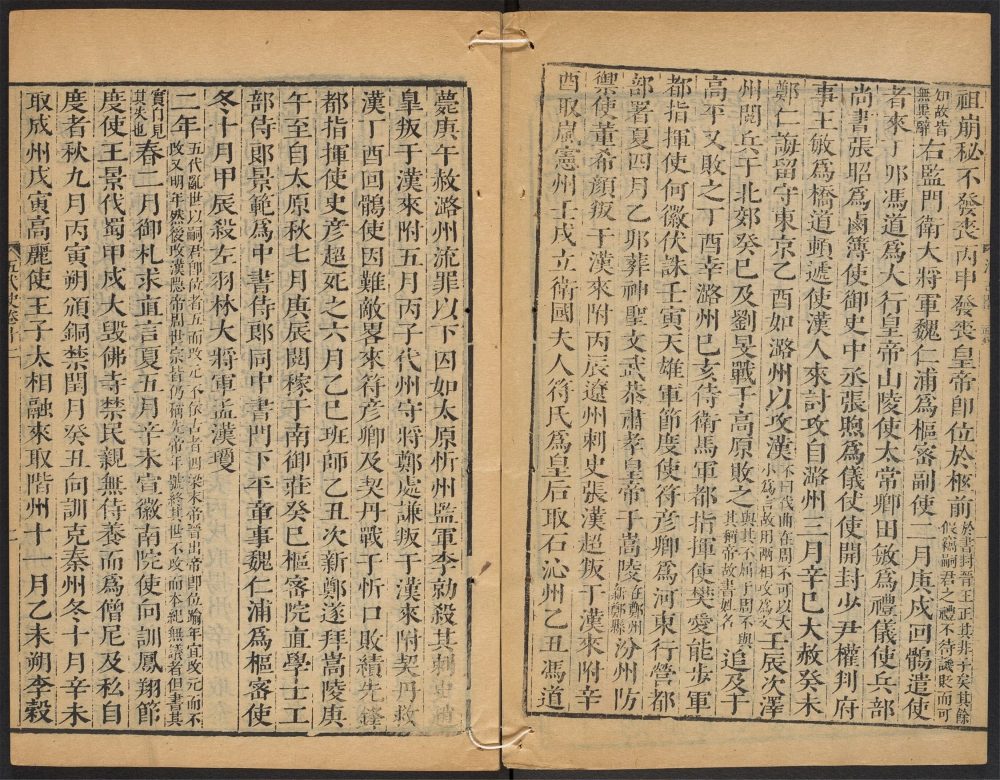 祖崩秘不發喪丙申發喪皇帝卽位於柩前於書封晉王正其非子矣其餘假竊嗣君之禮不待譏貶而可
知故皆無異辭右監門衛大將軍魏仁浦爲樞密副使二月庚戌回鶻遣使
者來丁卯馮道爲大行皇帝山陵使太常卿田敏爲禮儀使兵部
尚書張昭爲鹵簿使御史中丞張煦爲儀仗使開封少尹權判府
事王敏爲橋道頓遞使漢人來討攻自潞州三月辛巳大赦癸未
鄭仁誨留守東京乙酉如潞州以攻漢不曰代曲在周不可以大小爲言故用兩相攻爲文壬辰次澤
州閱兵于北郊癸巳及劉旻戰于高原敗之與其不屈于周不與其稱帝故書姓名追及于
高平又敗之丁酉幸潞州己亥侍衛馬軍都指揮使樊愛能步軍
都指揮使何徽伏誅壬寅天雄軍節度使符彥卿爲河東行營都
部署夏四月乙卯葬神聖文武恭肅孝皇帝于嵩陵在鄭州新鄭縣汾州防
禦使董希顏叛于漢來附丙辰遼州刺史張漢超叛于漢來附辛
酉取嵐憲州壬戌立衛國夫人符氏爲皇后取石沁州乙丑馮道
薨庚午赦潞州流罪以下囚如太原忻州監軍李勍殺其刺史趙
皐叛于漢來附五月丙子代州守將鄭處謙叛于漢來附契丹救
漢丁酉回鶻使因難敵畧來符彥卿及契丹戰于忻口敗績先鋒
都指揮使史彥超死之六月乙巳班師乙丑次新鄭遂拜嵩陵庚
午至自太原秋七月庚辰閱稼于南御莊癸巳樞密院直學士工
部侍郎景範爲中書侍郎同中書門下平章事魏仁浦爲樞密使
冬十月甲辰殺左羽林大將軍孟漢瓊
二年五代亂世以嗣君卽位者五而改元不依古者四梁末帝晉出帝卽位踰年宜改元而不改又明年然後改漢隱帝周世宗皆仍稱先帝年號終其世不改而本紀無譏者但書其
實則見其失也春二月御札求直言夏五月辛未宣徽南院使向訓鳳翔節
度使王景代蜀甲戌大毀佛寺禁民親無侍養而爲僧尼及私自
度者秋九月丙寅朔頒銅禁閏月癸丑向訓克秦州冬十月辛未
取成州戊寅高麗使王子太相融來取階州十一月乙未朔李穀